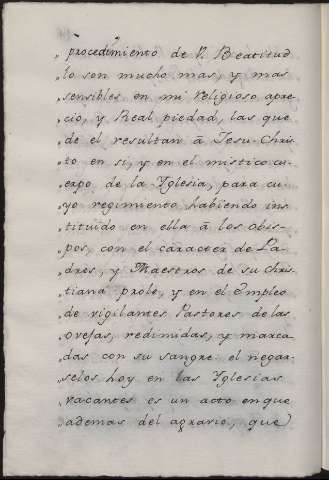 „ procedimiento de V. Beatitud
„ lo son mucho mas, y mas
„ sensibles en mi Religioso apre
„ cio, y Real piedad, las que
„ de el resultan à Jesu-Chris
„ to en si, y en el mistico cu-
„ erpo de la Yglesia, para cu-
„ yo regimiento habiendo ins
„ tituido en ella à los obis-
„ pos, con el caracter de Pa-
„ dres, y Maestros de su Chris
„ tiana prole, y en el Empleo
„ de vigilantes Pastores de las
„ ovejas, redimidas, y marca-
„ das con su sangre el negar-
„ selos hoy en las Yglesias
„ vacantes es un acto en que
„ ademas del agravio, que